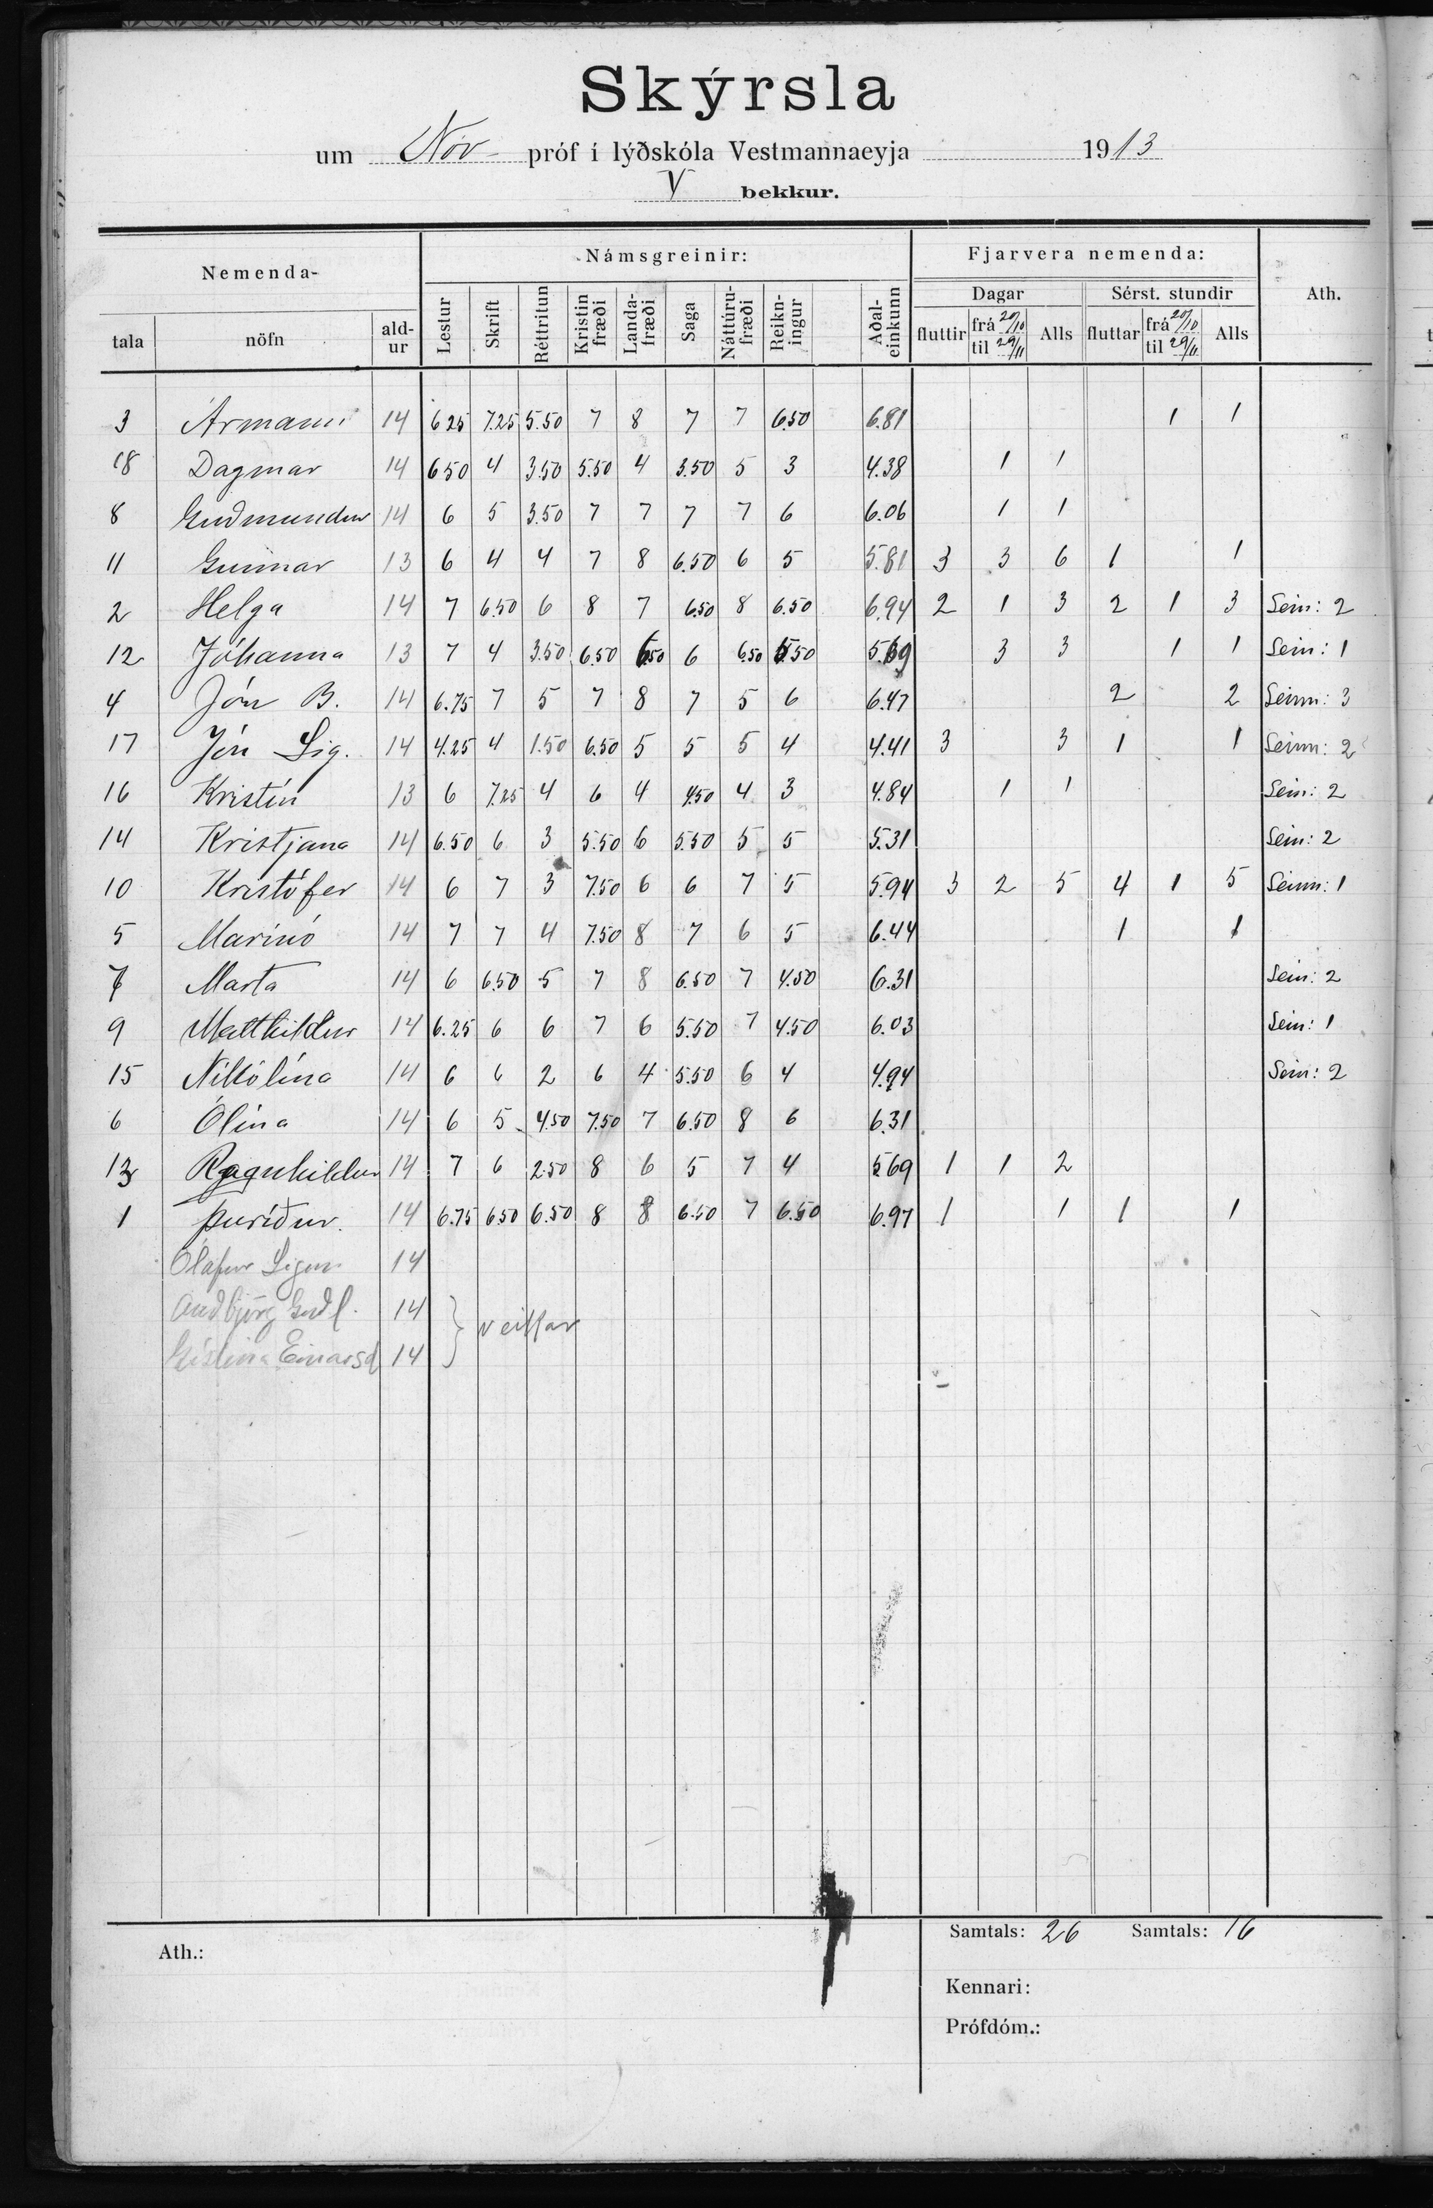 Skýrsla
um Nóv- próf í lýðskóla Vestmannaeyja 1913
V bekkur.
Nemenda- Námsgreinir: Fjarvera nemenda: Ath.
Dagar Sérst. stundir
tala nöfn ald-ur Lestur Skrift Réttritun Kristin fræði Landa-fræði Saga Náttúru-fræði Reikn-ingur Aðal-einkunn fluttir frá 20/10 til 29/11 Alls fluttar frá 20/10 til 29/11 Alls
3 Ármann 14 6.25 7.25 5.50 7 8 7 7 6.50 6.81 1 1
18 Dagmar 14 6.50 4 3.50 5.50 4 3.50 5 3 4.38 1 1
8 Guðmundur 14 6 5 3.50 7 7 7 7 6 6.06 1 1
11 Gunnar 13 6 4 4 7 8 6.50 6 5 5.81 3 3 6 1 1
2 Helga 14 7 6.50 6 8 7 6.50 8 6.50 6.94 2 1 3 2 1 3 Sein: 2
12 Jóhanna 13 7 4 3.50 6.50 6.50 6 6.50 5.50 5.69 3 3 1 1 Sein: 1
4 Jón B. 14 6.75 7 5 7 8 7 5 6 6.47 2 2 Seinn: 3
17 Jón Sig. 14 4.25 4 1.50 6.50 5 5 5 4 4.41 3 3 1 1 Seinn: 2
16 Kristín 13 6 7.25 4 6 4 4.50 4 3 4.84 1 1 Sein: 2
14 Kristjana 14 6.50 6 3 5.50 6 5.50 5 5 5.31 Sein: 2
10 Kristófer 14 6 7 3 7.50 6 6 7 5 5.94 3 2 5 4 1 5 Seinn: 1
5 Marinó 14 7 7 4 7.50 8 7 6 5 6.44 1 1
7 Marta 14 6 6.50 5 7 8 6.50 7 4.50 6.31 Sein: 2
9 Matthildur 14 6.25 6 6 7 6 5.50 7 4.50 6.03 Sein: 1
15 Nikólína 14 6 6 2 6 4 5.50 6 4 4.94 Sein: 2
6 Ólína 14 6 5 4.50 7.50 7 6.50 8 6 6.31
13 Ragnhildur 14 7 6 2.50 8 6 5 7 4 5.69 1 1 2
1 Þuríður. 14 6.75 6.50 6.50 8 8 6.50 7 6.50 6.97 1 1 1 1
Ólafur Sigur 14
Auðbjörg Guðl. 14
veikar
Gíslína Einarsd 14
Ath.: Samtals: 26 Samtals: 16
Kennari:
Prófdóm.: